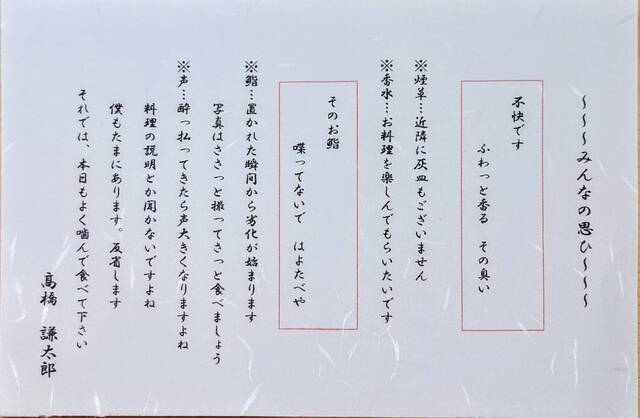 ～～～みんなの思ひ～～～
不快です
ふわっと香る　その臭い
※煙草…近隣に灰皿もございません
※香水…お料理を楽しんでもらいたいです
そのお鮨
喋ってないで　はよたべや
※鮨…置かれた瞬間から劣化が始まります
写真はささっと撮ってさっと食べましょう
※声…酔っ払ってきたら声大きくなりますよね
料理の説明とか聞かないですよね
僕もたまにあります。反省します
それでは、本日もよく噛んで食べて下さい
髙橋　謙太郎